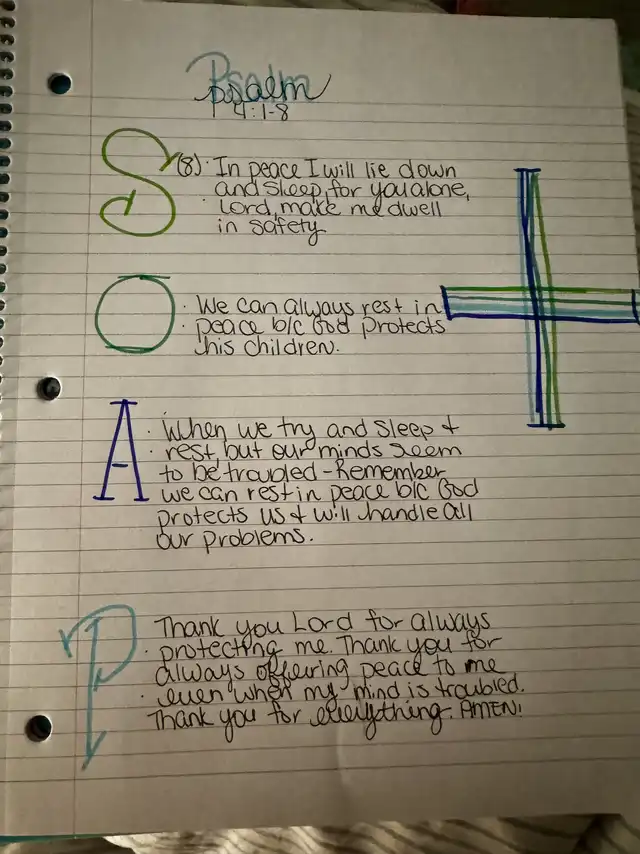 Psalm
4:1-8
S
(8). In peace I will lie down
and sleep, for you alone,
Lord, make me dwell
in safety
O
. We can always rest in
. peace b/c God protects
his children.
A
. When we try and sleep +
. rest, but our minds seem
to be troubled - Remember
we can rest in peace b/c God
protects us + will handle all
our problems.
P
Thank you Lord for always
. protecting me. Thank you for
always offering peace to me
. even when my mind is troubled.
Thank you for everything. AMEN!